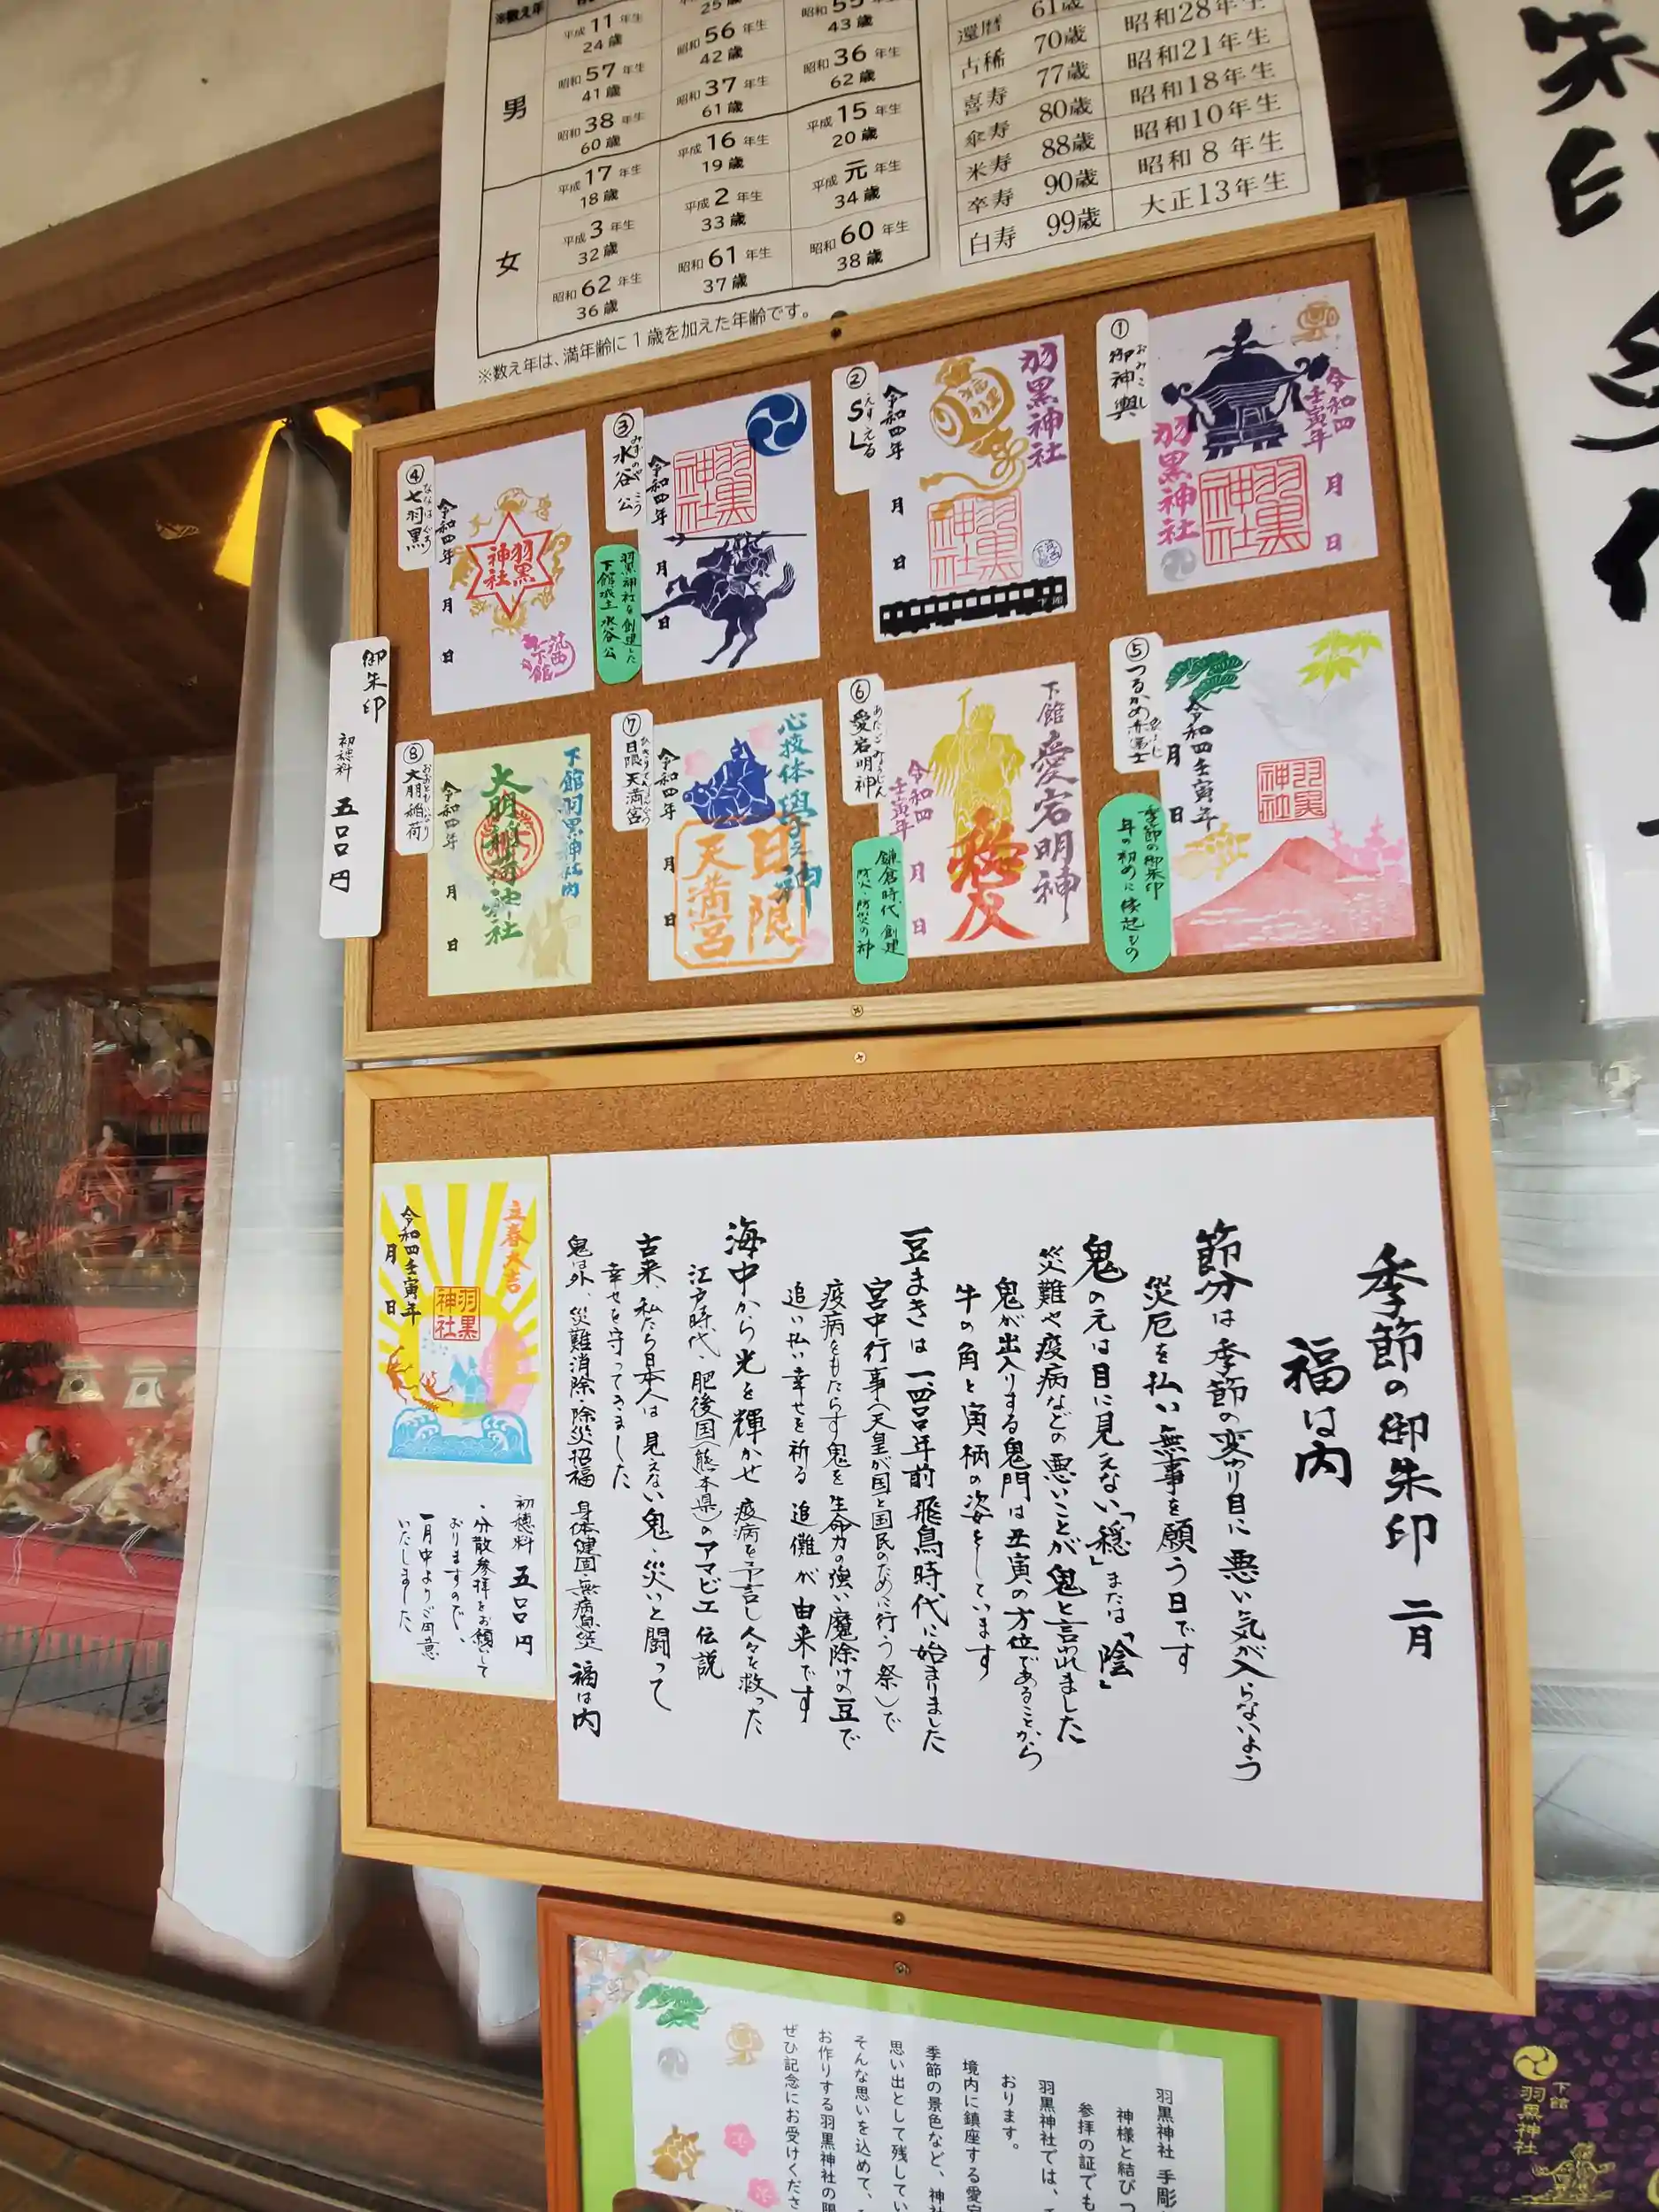 ※数え年
平成11年生
24歳
25歳
昭和55年生
43歳
昭和56年生
42歳
昭和57年生
41歳
昭和36年生
62歳
昭和37年生
61歳
昭和38年生
60歳
男
平成15年生
20歳
平成16年生
19歳
平成17年生
18歳
平成元年生
34歳
平成2年生
33歳
平成3年生
32歳
昭和60年生
38歳
昭和61年生
37歳
昭和62年生
36歳
女
※数え年は、満年齢に1歳を加えた年齢です。
還暦 61歳 昭和
古稀 70歳 昭和28年生
喜寿 77歳 昭和21年生
傘寿 80歳 昭和18年生
米寿 88歳 昭和10年生
卒寿 90歳 昭和8年生
白寿 99歳 大正13年生
①御神輿
おみこし
令和四
壬寅年
月
日
羽黒神社
羽黒神社
②SL
えすえる
羽黒神社
令和四年
月
日
羽黒神社
下館
③水谷公
みずのやこう
令和四年
月
日
羽黒神社
羽黒神社を創建した
下館城主 水谷公
④七羽黒
ななはぐろ
令和四年
月
日
羽黒神社
筑西
下館
⑤つるかめ赤富士
令和四壬寅年
月
日
羽黒神社
季節の御朱印
年の初めに縁起もの
⑥愛宕明神
あたごみょうじん
下館 愛宕明神
令和四
壬寅年
月
日
鎌倉時代 創建
防火・防災の神
⑦日限天満宮
心技体 學之神
令和四年
月
日
日限
天満宮
⑧大朋稲荷
おおともいなり
下館羽黒神社内
大朋稲荷神社
令和四年
月
日
御朱印
初穂料 五百円
季節の御朱印 二月
福は内
節分は季節の変わり目に悪い気が入らないよう
災厄を払い無事を願う日です
鬼の元は目に見えない「穏」または「陰」
災難や疫病などの悪いことが鬼と言われました
鬼が出入りする鬼門は丑寅の方位であることから
牛の角と寅柄の姿をしています
豆まきは一四〇〇年前飛鳥時代に始まりました
宮中行事(天皇が国と国民のために行う祭)で
疫病をもたらす鬼を生命力の強い魔除けの豆で
追い払い幸せを祈る 追儺が由来です
海中から光を輝かせ疫病を予言し人々を救った
江戸時代・肥後国(熊本県)のアマビエ伝説
古来、私たち日本人は見えない鬼・災いと闘って
幸せを守ってきました
鬼は外、災難消除・除災招福 身体健固無病息災 福は内
立春大吉
令和四壬寅年
月
日
羽黒神社
初穂料 五百円
・分散参拝をお願いして
おりますので、
一月中よりご用意
いたしました
羽黒神社 手彫
神様と結びつ
参拝の証でも
おります。
羽黒神社では、
境内に鎮座する愛宕
季節の景色など、神社
思い出として残してい
そんな思いを込めて、
お作りする羽黒神社の
ぜひ記念にお受けくださ
下館
羽黒神社